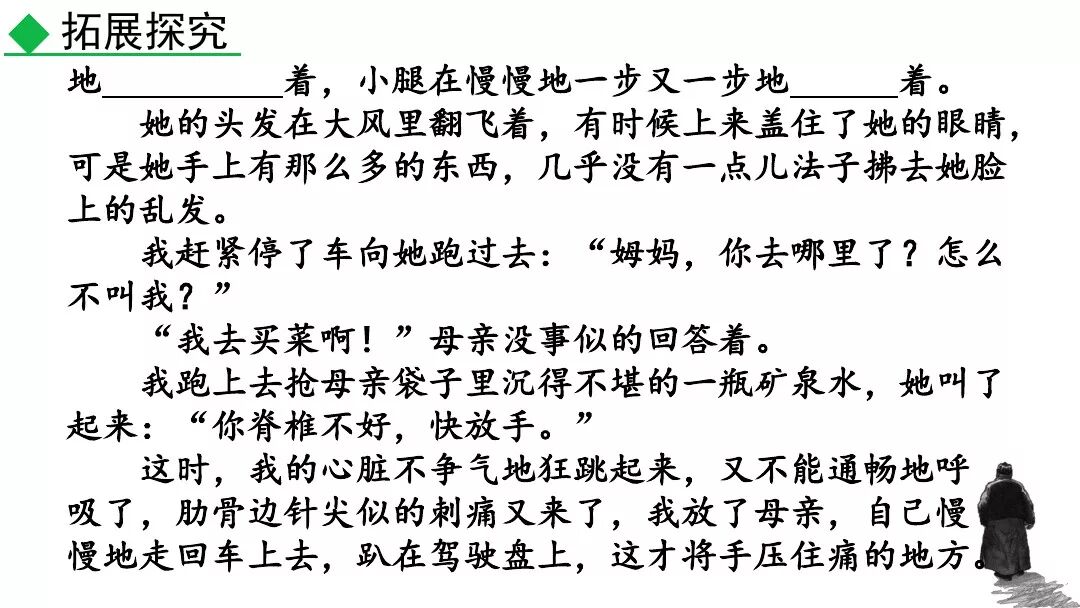 拓展探究
地__________着，小腿在慢慢地一步又一步地______着。
她的头发在大风里翻飞着，有时候上来盖住了她的眼睛，
可是她手上有那么多的东西，几乎没有一点儿法子拂去她脸
上的乱发。
我赶紧停了车向她跑过去：“姆妈，你去哪里了？怎么
不叫我？”
“我去买菜啊！”母亲没事似的回答着。
我跑上去抢母亲袋子里沉得不堪的一瓶矿泉水，她叫了
起来：“你脊椎不好，快放手。”
这时，我的心脏不争气地狂跳起来，又不能通畅地呼
吸了，肋骨边针尖似的刺痛又来了，我放了母亲，自己慢
慢地走回车上去，趴在驾驶盘上，这才将手压住痛的地方。